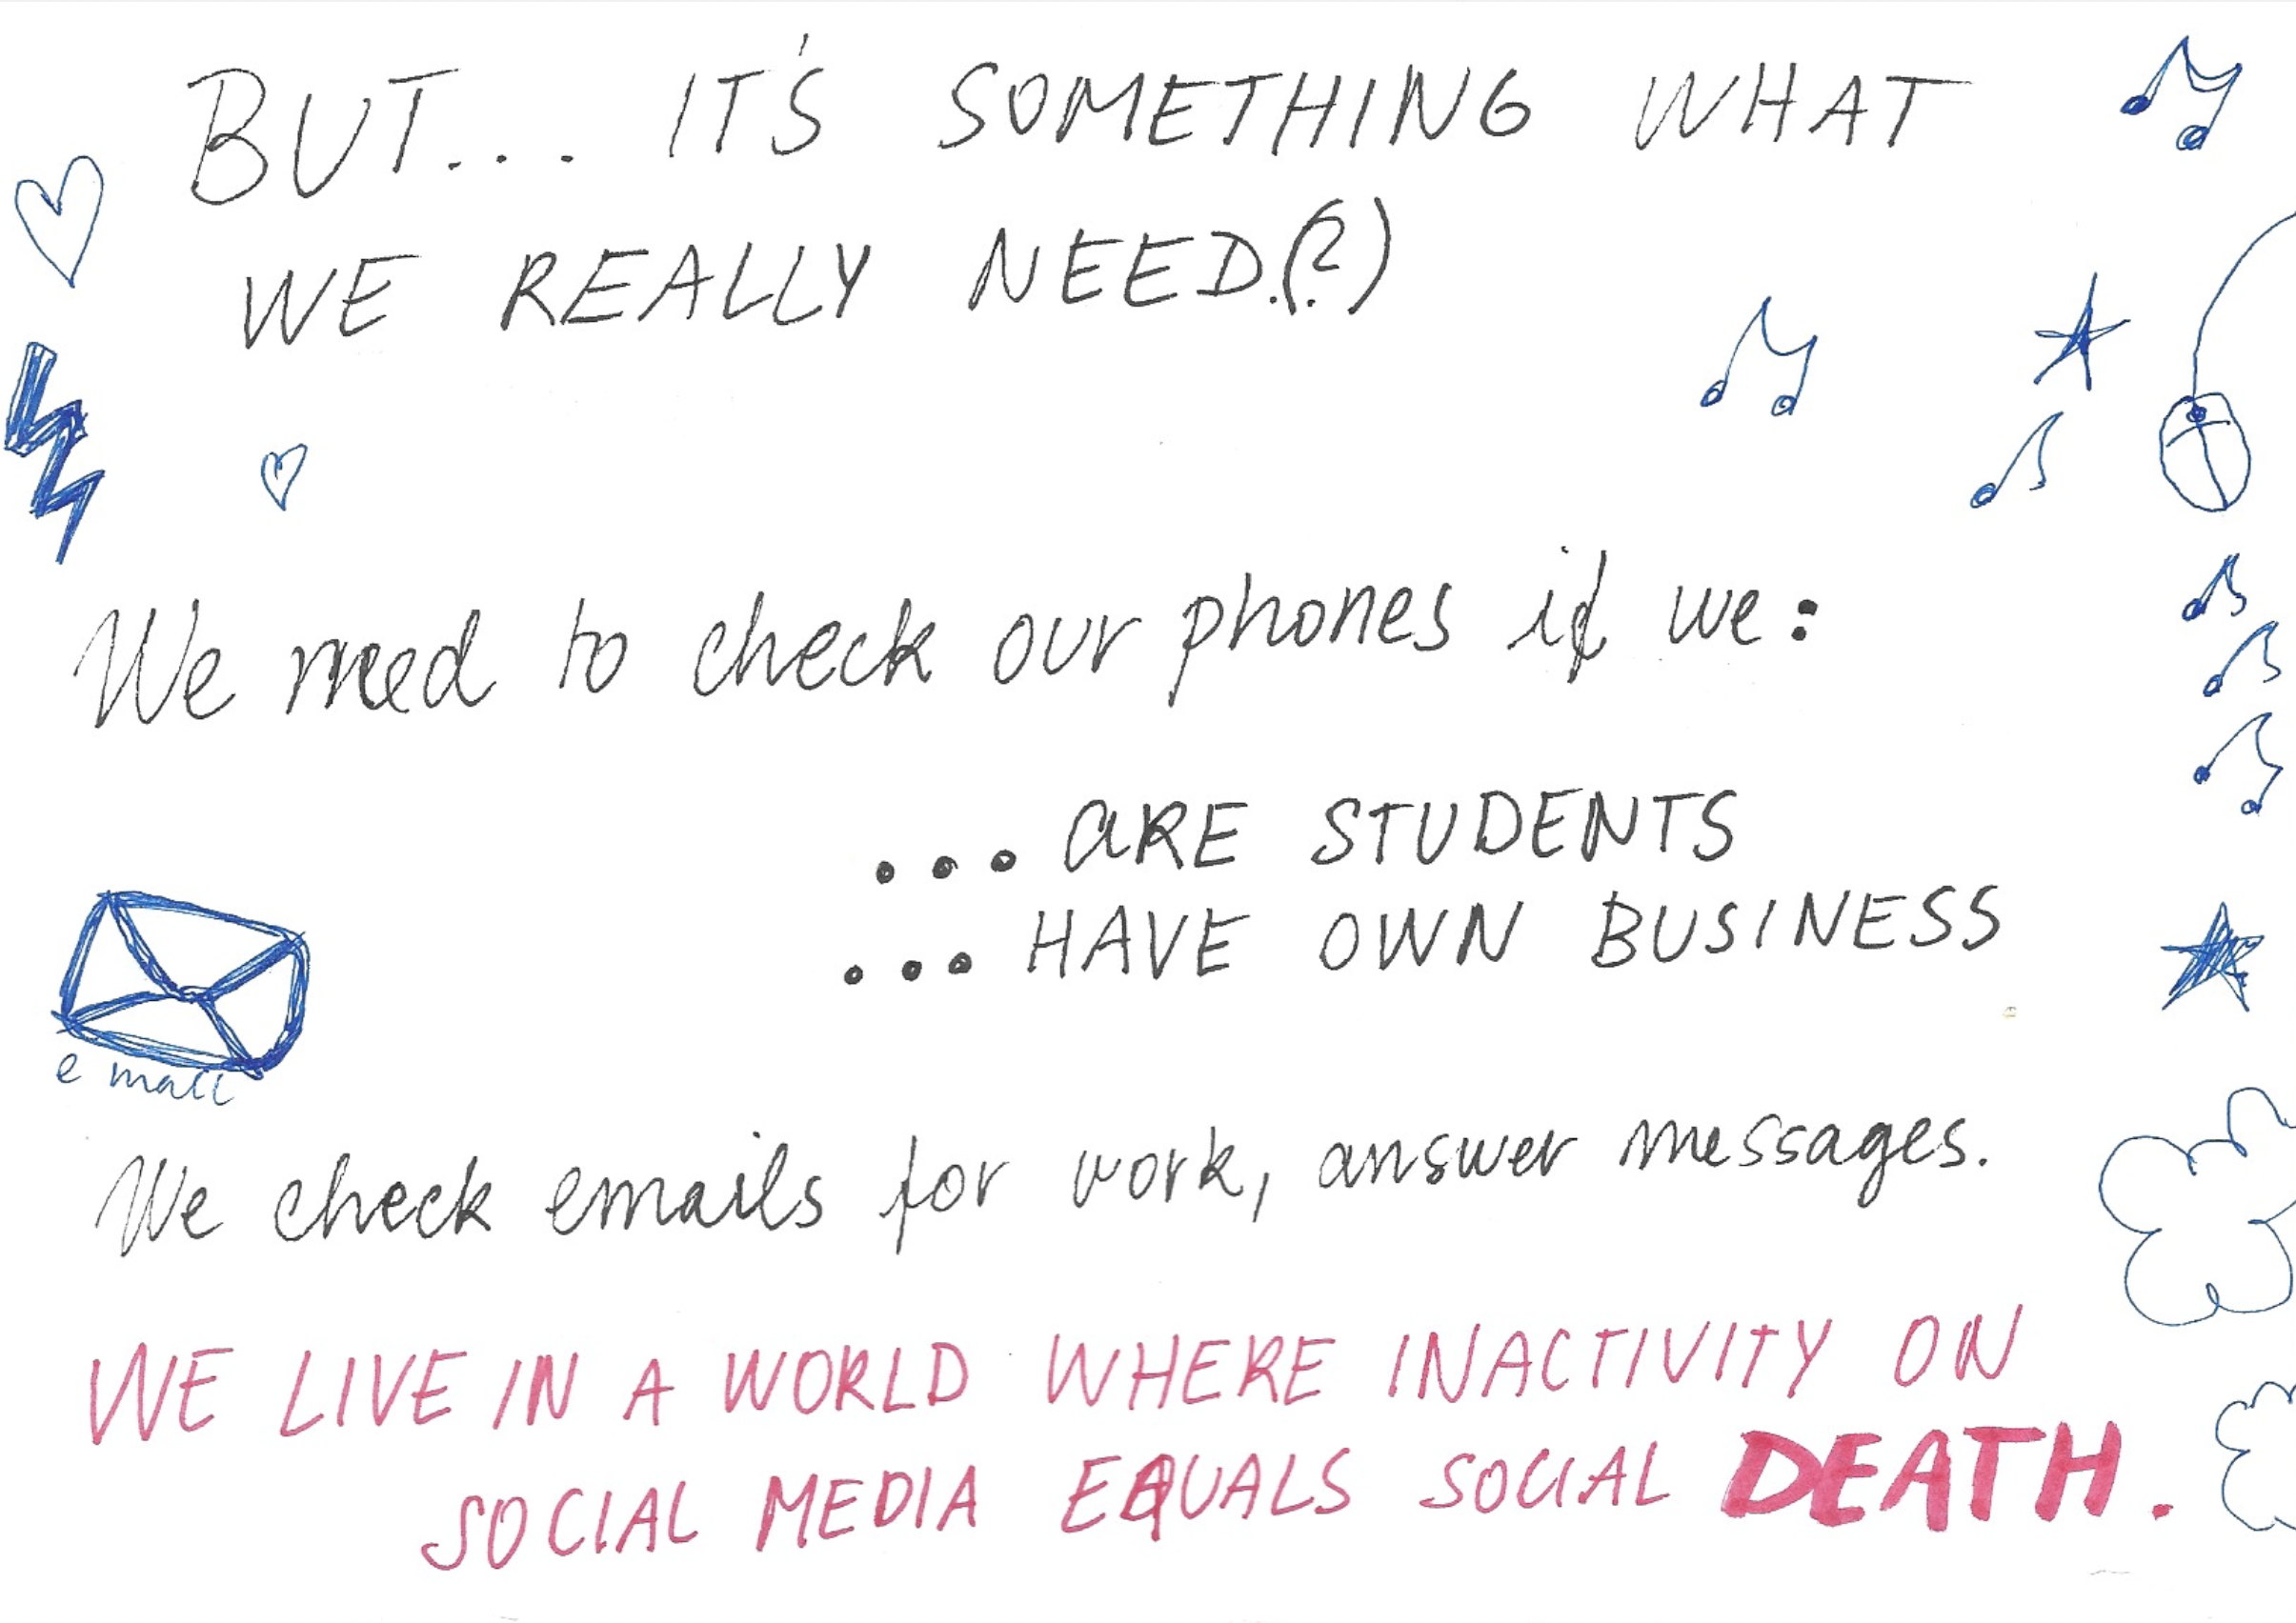 BUT... IT'S SOMETHING WHAT
WE REALLY NEED.(?)
We need to check our phones if we:
...ARE STUDENTS
...HAVE OWN BUSINESS
e mail
We check emails for work, answer messages.
WE LIVE IN A WORLD WHERE INACTIVITY ON
SOCIAL MEDIA EQUALS SOCIAL DEATH.